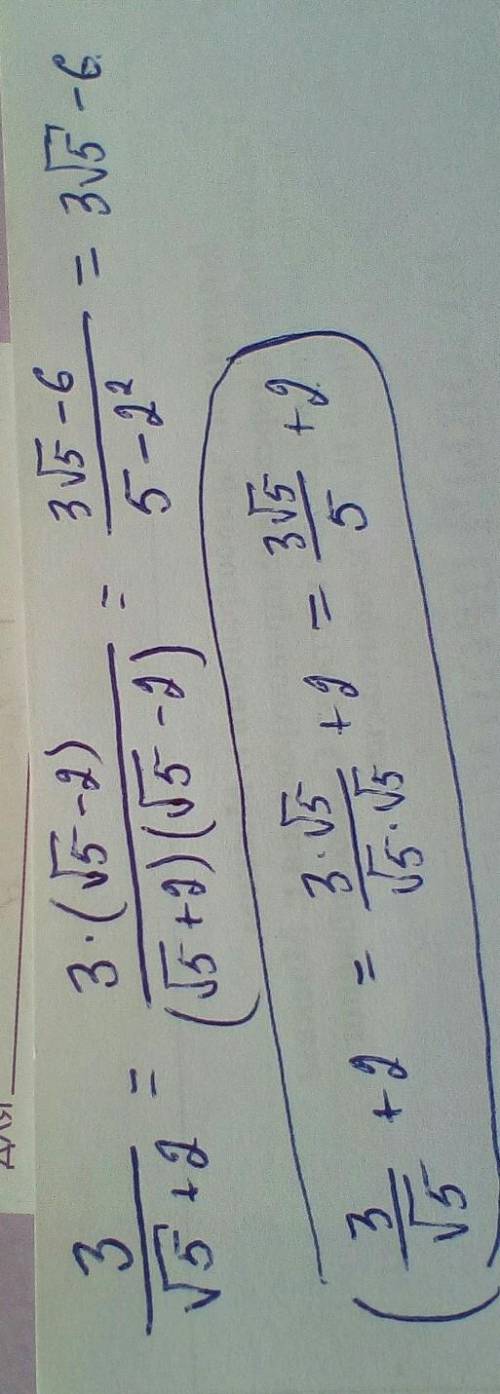 для
3/(√5+2) = 3·(√5-2)/((√5+2)(√5-2)) = (3√5-6)/(5-2²) = 3√5-6
(3/√5 +2 = 3·√5/(√5·√5) +2 = 3√5/5 +2